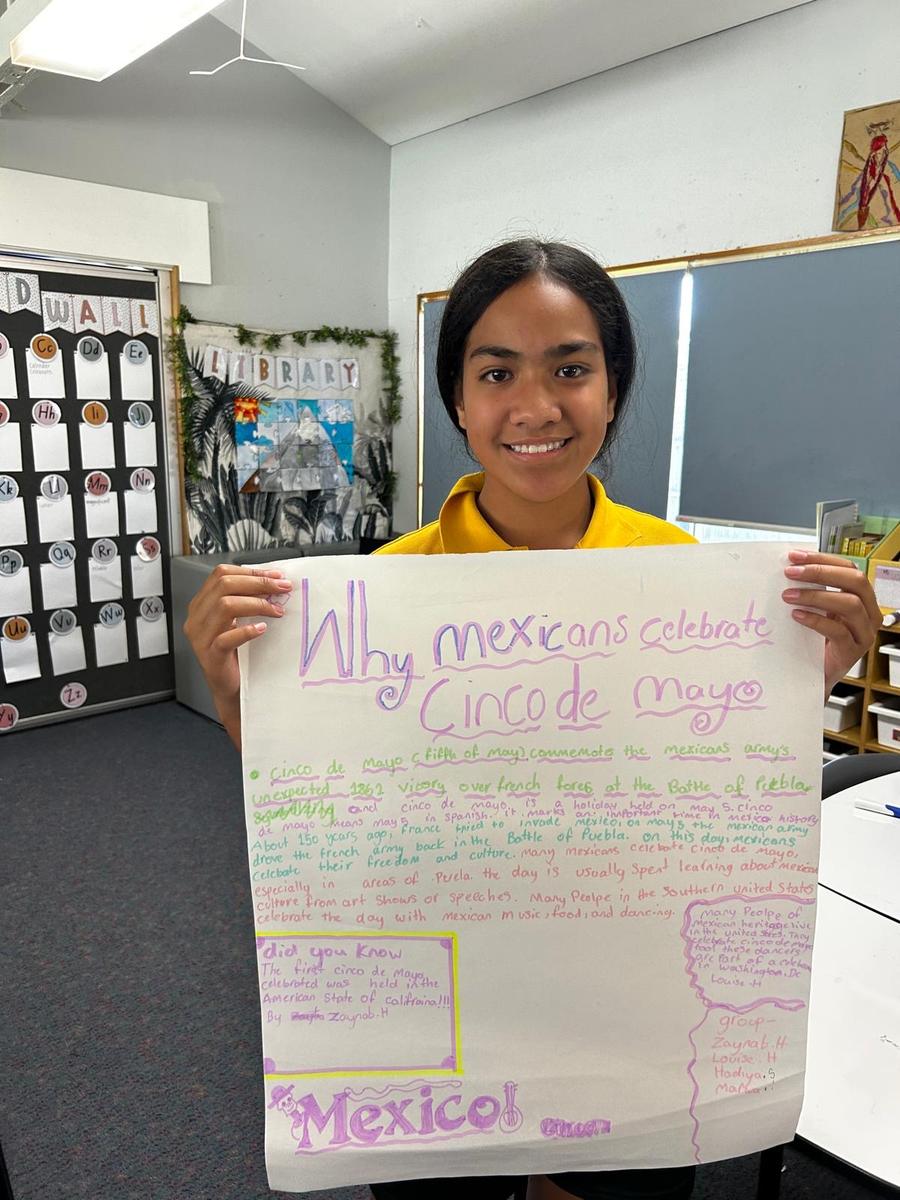 D WALL
Cc
Dd
Ee
Hh
Ii
Jj
Kk
Ll
Mm
Nn
Pp
Qq
Rr
Ss
Uu
Vv
Ww
Xx
Yy
Zz
LIBRARY
Why mexicans celebrate
Cinco de mayo
• cinco de mayo (fifth of may) commemotes the mexicans army's
unexpected 1862 vicory over french fores at the Battle of Pueblar
and cinco de mayo, is a holiday held on may 5. cinco
de mayo means may 5 in spanish. it marks an important time in mexico history
About 150 years ago, france tried to invade mexico, on may 5 the mexican army
drove the french army back in the Battle of Puebla. on this day, mexicans
celebate their freedom and culture. many mexicans celebate cinco de mayo,
especially in areas of Puela. the day is usually spent learning about mexican
culture from art shows or speeches. Many Pealpe in the southern united states
celebrate the day with mexican music, food, and dancing.
did you know
The first cinco de Mayo
celebrated was held in the
American State of califraina!!!
By Zaynab.H
many Pealpe of
mexican heritage live
in the united states. They
celebrate cinco de mayo
too! these dancers
are part of a
in washington, Dc
Louise.H
group-
Zaynab.H
Louise.H
Hadiya.S
Mexico!